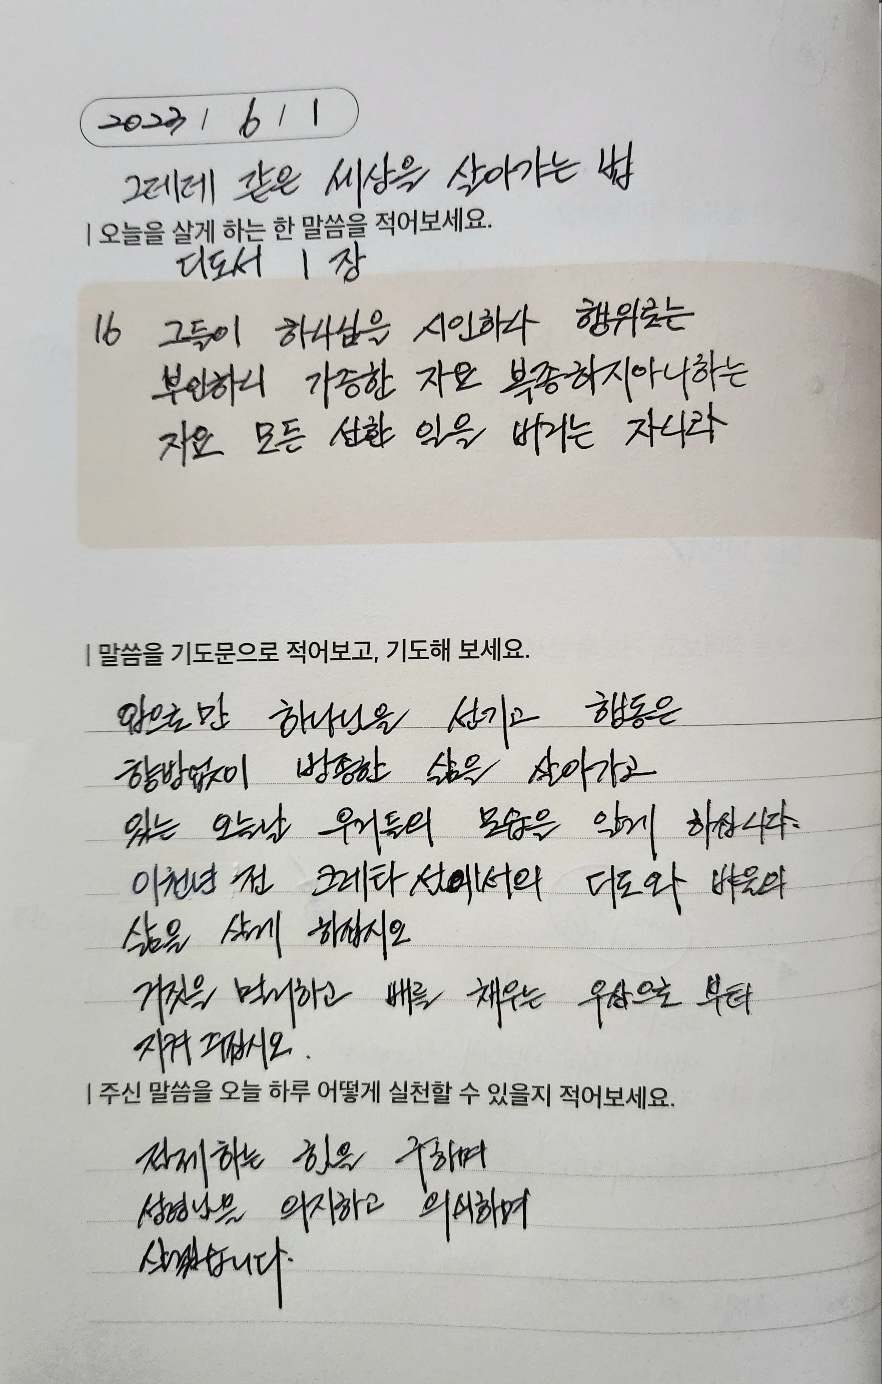 2023 / 6 / 1
그데테 같은 세상을 살아가는 법
| 오늘을 살게 하는 한 말씀을 적어보세요.
디도서 1 장
16 그들이 하나님을 시인하나 행위로는
부인하니 가증한 자요 복종하지아니하는
자요 모든 선한 일을 버리는 자니라
| 말씀을 기도문으로 적어보고, 기도해 보세요.
입으로만 하나님을 섬기고 행동은
향방없이 방종한 삶을 살아가고
있는 오늘날 우리들의 모습을 알게 하십니다.
이천년 전 크레타 섬에서의 디도와 바울의
삶을 살게 하십시오
거짓을 멀리하고 배를 채우는 우상으로 부터
지켜 주십시오.
| 주신 말씀을 오늘 하루 어떻게 실천할 수 있을지 적어보세요.
절제하는 힘을 구하며
성령님을 의지하고 의식하며
살겠습니다.